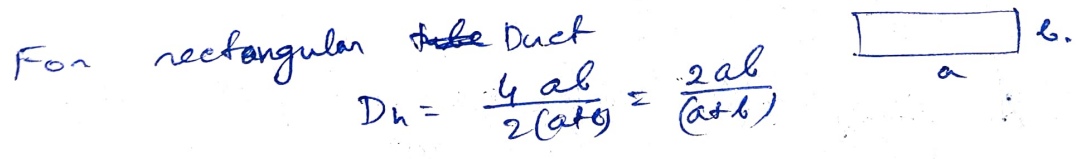 For rectangular Duct
b.
a
Dh = 4 ab / 2(a+b) = 2ab / (a+b)